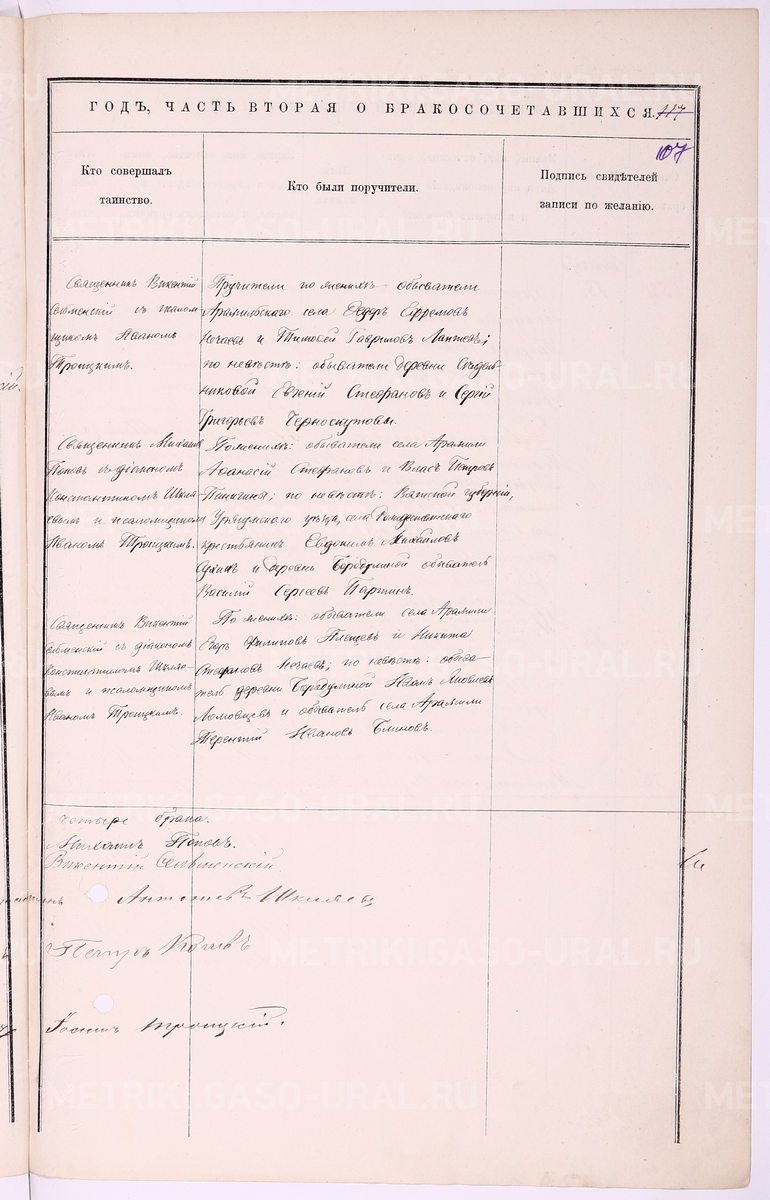 ГОДЪ, ЧАСТЬ ВТОРАЯ О БРАКОСОЧЕТАВШИХСЯ. 117
107
Кто совершалъ
таинство.
Кто были поручители.
Подпись свидѣтелей
записи по желанію.
Священникъ Викентій
съ псалом-
щикомъ Иваномъ
Троицкимъ.
Пручители по женихѣ обыватели
Арамильскаго села Федоръ Ефремовъ
Нечаевъ и Тимофей Гавриловъ Лаптевъ;
по невѣстѣ: обыватели деревни
никовой Евгеній Стефановъ и Сергій
Григорьевъ Черноскутовы.
Священникъ Михаилъ
Поповъ съ діакономъ
Константиномъ Шкля-
евымъ и псаломщикомъ
Иваномъ Троицкимъ.
По женихѣ: обыватели села Арамили
Афанасій Стефановъ и Власъ Петровъ
по невѣстѣ: Вятской губерніи,
Уржумскаго уѣзда, села Рождественскаго
крестьянинъ Евдокимъ Михайловъ
и деревни Бородулиной обыватель
Василій Сергеевъ Партинъ.
Священникъ Викентій
съ діакономъ
Константиномъ Шкляе-
вымъ и псаломщикомъ
Иваномъ Троицкимъ.
По женихѣ: обыватели села Арамили
Егоръ Филиповъ Плещевъ и Никита
Стефановъ Нечаевъ; по невѣстѣ: обыва-
тель деревни Бородулиной Иванъ
Ломовцевъ и обыватель села Арамили
Терентій Ивановъ Блиновъ.
четыре брака.
Михаилъ Поповъ.
Викентій
Шкляевъ
Петръ
Іоаннъ Троицкій.
METRIKI.GASO-URAL.RU